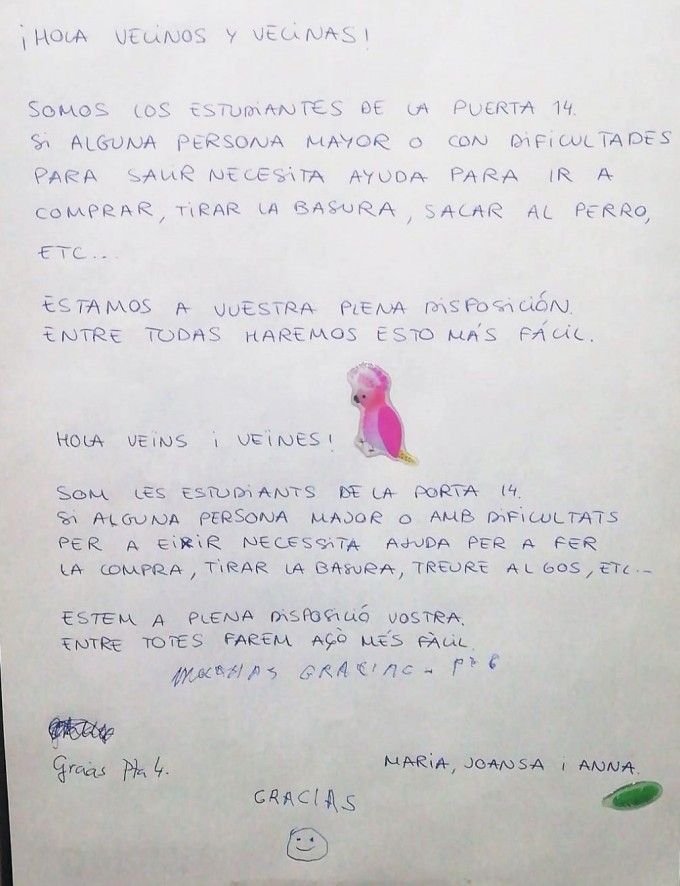 ¡HOLA VECINOS Y VECINAS!
SOMOS LOS ESTUDIANTES DE LA PUERTA 14.
SI ALGUNA PERSONA MAYOR O CON DIFICULTADES
PARA SALIR NECESITA AYUDA PARA IR A
COMPRAR, TIRAR LA BASURA, SACAR AL PERRO,
ETC...
ESTAMOS A VUESTRA PLENA DISPOSICIÓN.
ENTRE TODAS HAREMOS ESTO MÁS FÁCIL.
HOLA VEINS i VEÏNES!
SOM LES ESTUDIANTS DE LA PORTA 14.
SI ALGUNA PERSONA MAJOR O AMB DIFICULTATS
PER A EIXIR NECESSITA AJUDA PER A FER
LA COMPRA, TIRAR LA BASURA, TREURE AL GOS, ETC...
ESTEM A PLENA DISPOSICIÓ VOSTRA.
ENTRE TOTES FAREM AÇÒ MÉS FÀCIL.
MUCHAS GRACIAS - Pta 6
Graias Pta 4.
MARIA, JOANSA i ANNA.
GRACIAS